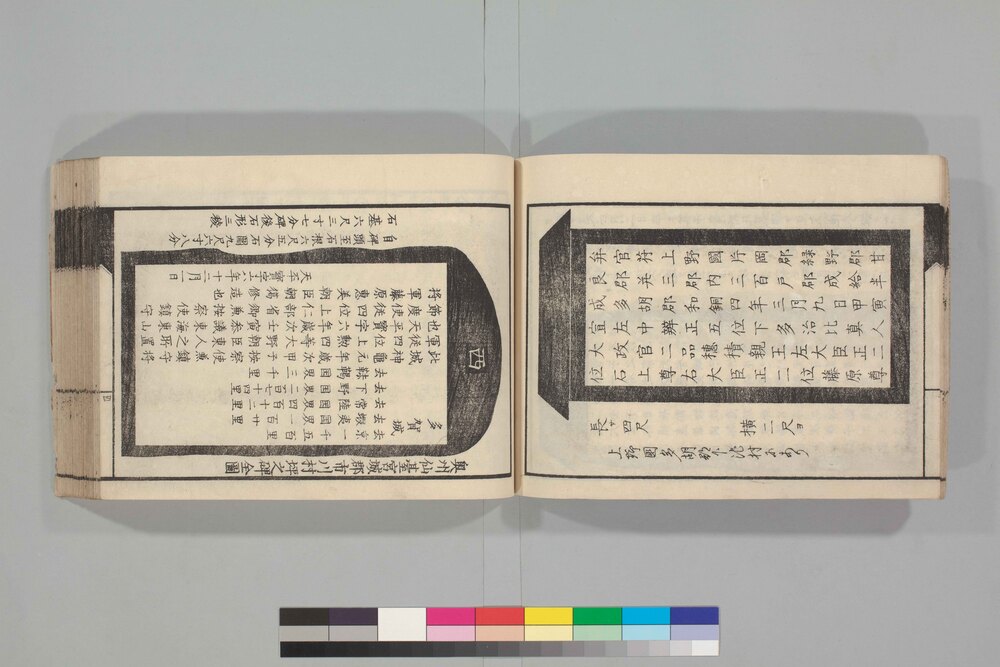 弁官符上野國片岡郡緑野郡甘
良郡并三郡内三百戸郡成給羊
成多胡郡和銅四年三月九日甲寅
宣左中弁正五位下多治比真人
大政官二品穂積親王左大臣正二
位石上尊右大臣正二位藤原尊
長サ四尺
横二尺ヨ
上野國多胡郡下池村にあり
奥州仙臺宮城郡市川村坪之碑全圖
西
多賀城
去京一千五百里
去蝦夷國界一百廿里
去常陸國界四百十二里
去下野國界二百七十四里
去靺鞨國界三千里
此城神龜元年歳次甲子按察使兼鎮守將
軍從四位上勲四等大野朝臣東人之所置
也天平寶字六年歳次壬寅參議東海東山
節度使從四位上仁部省卿兼按察使鎮守
將軍藤原惠美朝臣朝獦修造也
天平寶字六年十二月一日
自碑頭至石根六尺五分石圍九尺六寸八分
石基六尺三寸七分碑後石形三稜